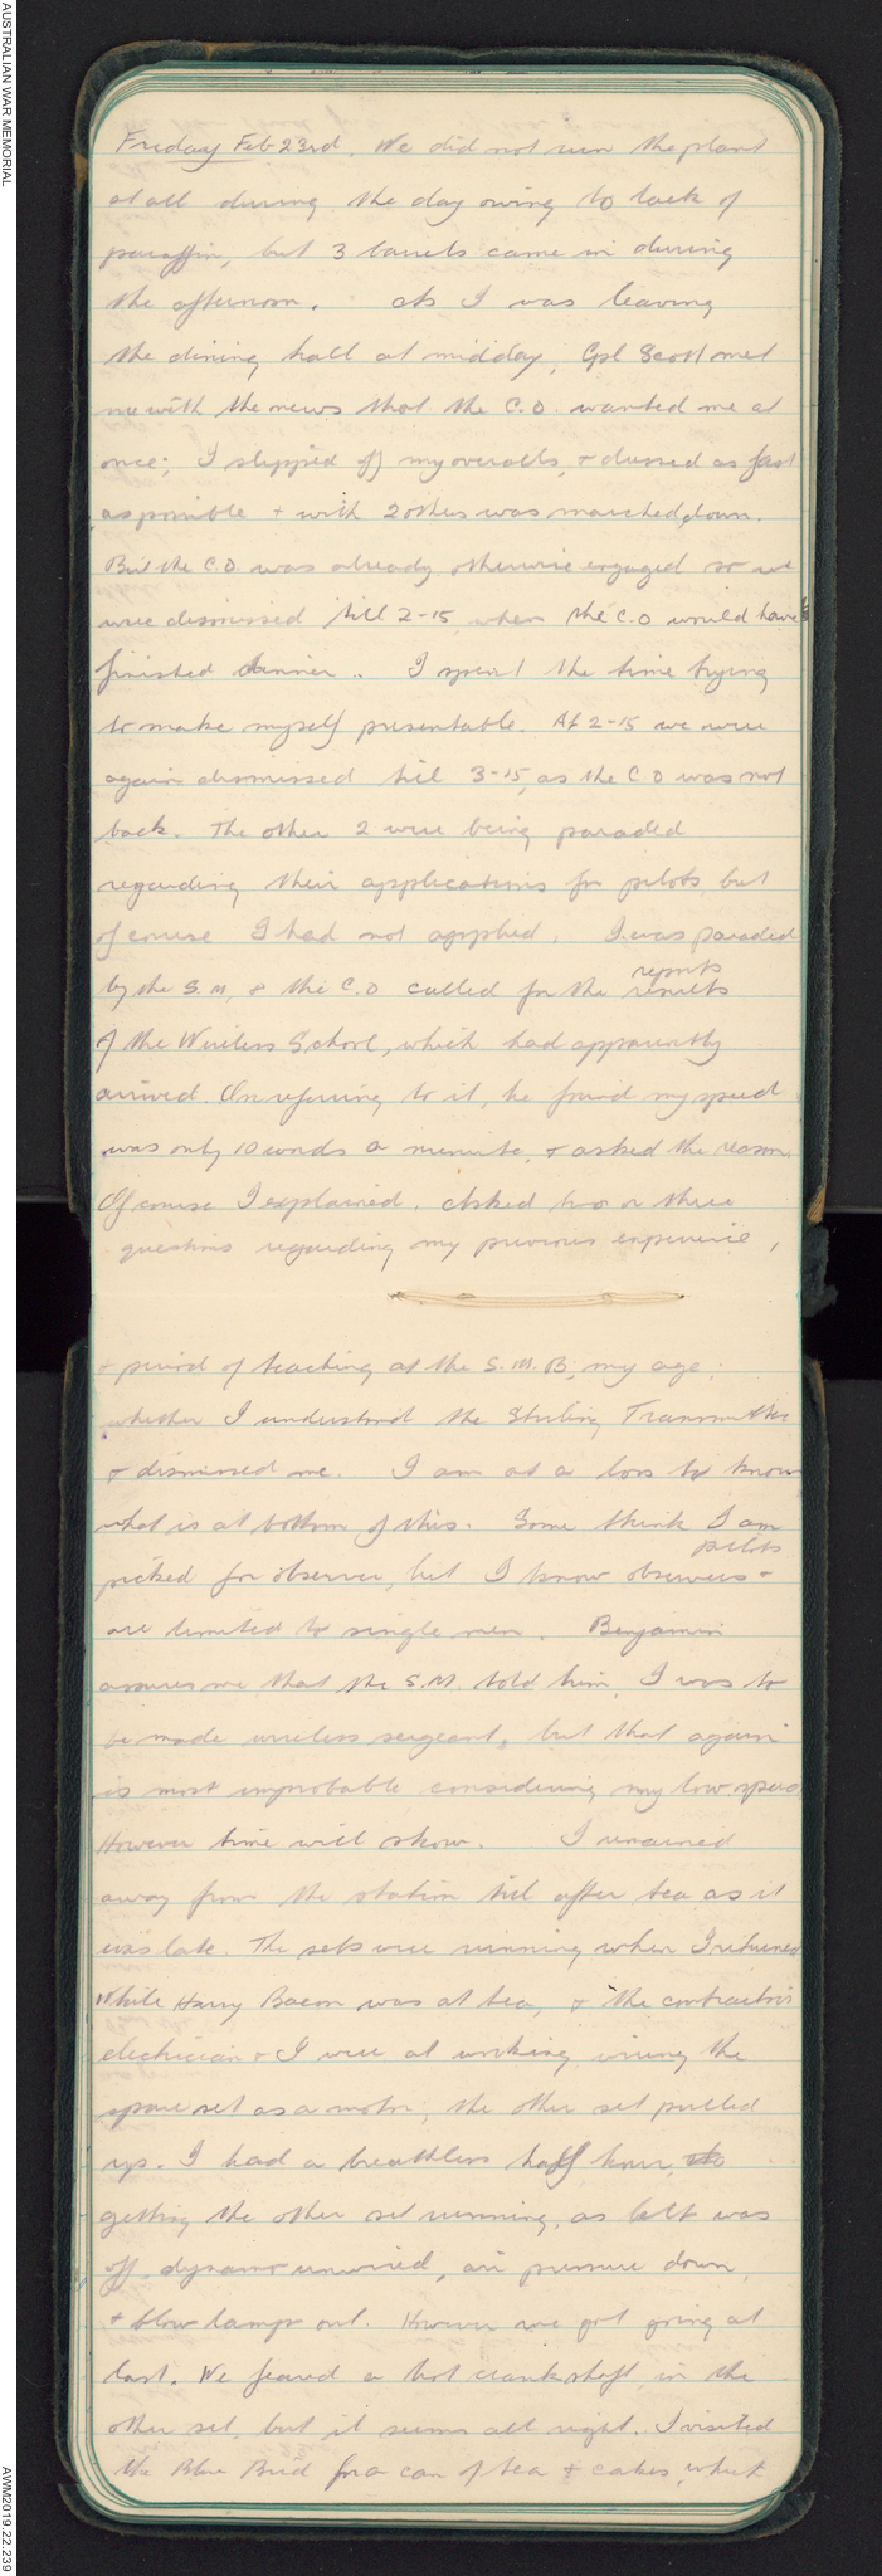 AUSTRALIAN WAR MEMORIAL
Friday Feb 23rd. We did not run the plant
at all during the day owing to lack of
paraffin, but 3 barrels came in during
the afternoon. As I was leaving
the dining hall at midday, Cpl Scott met
me with the news that the C.O. wanted me at
once; I slipped off my overalls, + dressed as fast
as possible + with 2 others was marched down.
But the C.O. was already otherwise engaged so we
were dismissed till 2-15 when the C.O would have
finished dinner. I spent the time trying
to make myself presentable. At 2-15 we were
again dismissed till 3-15, as the C O was not
back. The other 2 were being paraded
regarding their applications for pilots, but
of course I had not applied. I was paraded
by the S.M, & the C.O called for the results
reports
of the Wireless School, which had apparently
arrived. On referring to it, he found my speed
was only 10 words a minute, + asked the reason.
Of course I explained. Asked two or three
questions regarding my previous experience,
+ period of teaching at the S.M.B; my age;
whether I understood the Sterling Transmitter
+ dismissed me. I am at a loss to know
what is at bottom of this. Some think I am
picked for observer, but I know observers +
pilots
are limited to single men. Benjamin
assures me that the S.M. told him I was to
be made wireless sergeant, but that again
is most improbable considering my low speed.
However time will show. I remained
away from the station till after tea as it
was late. The sets were running when I returned
While Harry Bacon was at tea, & the contractor's
electrician + I were at working wiring the
spare set as a motor, the other set pulled
up. I had a breathless half hour,
getting the other set running, as belt was
off, dynamo unwired, air pressure down,
+ blow lamps out. However we got going at
last. We feared a hot crankshaft in the
other set, but it seems all right. I visited
the Blue Bird for a can of tea & cakes, which
AWM2019.22.239